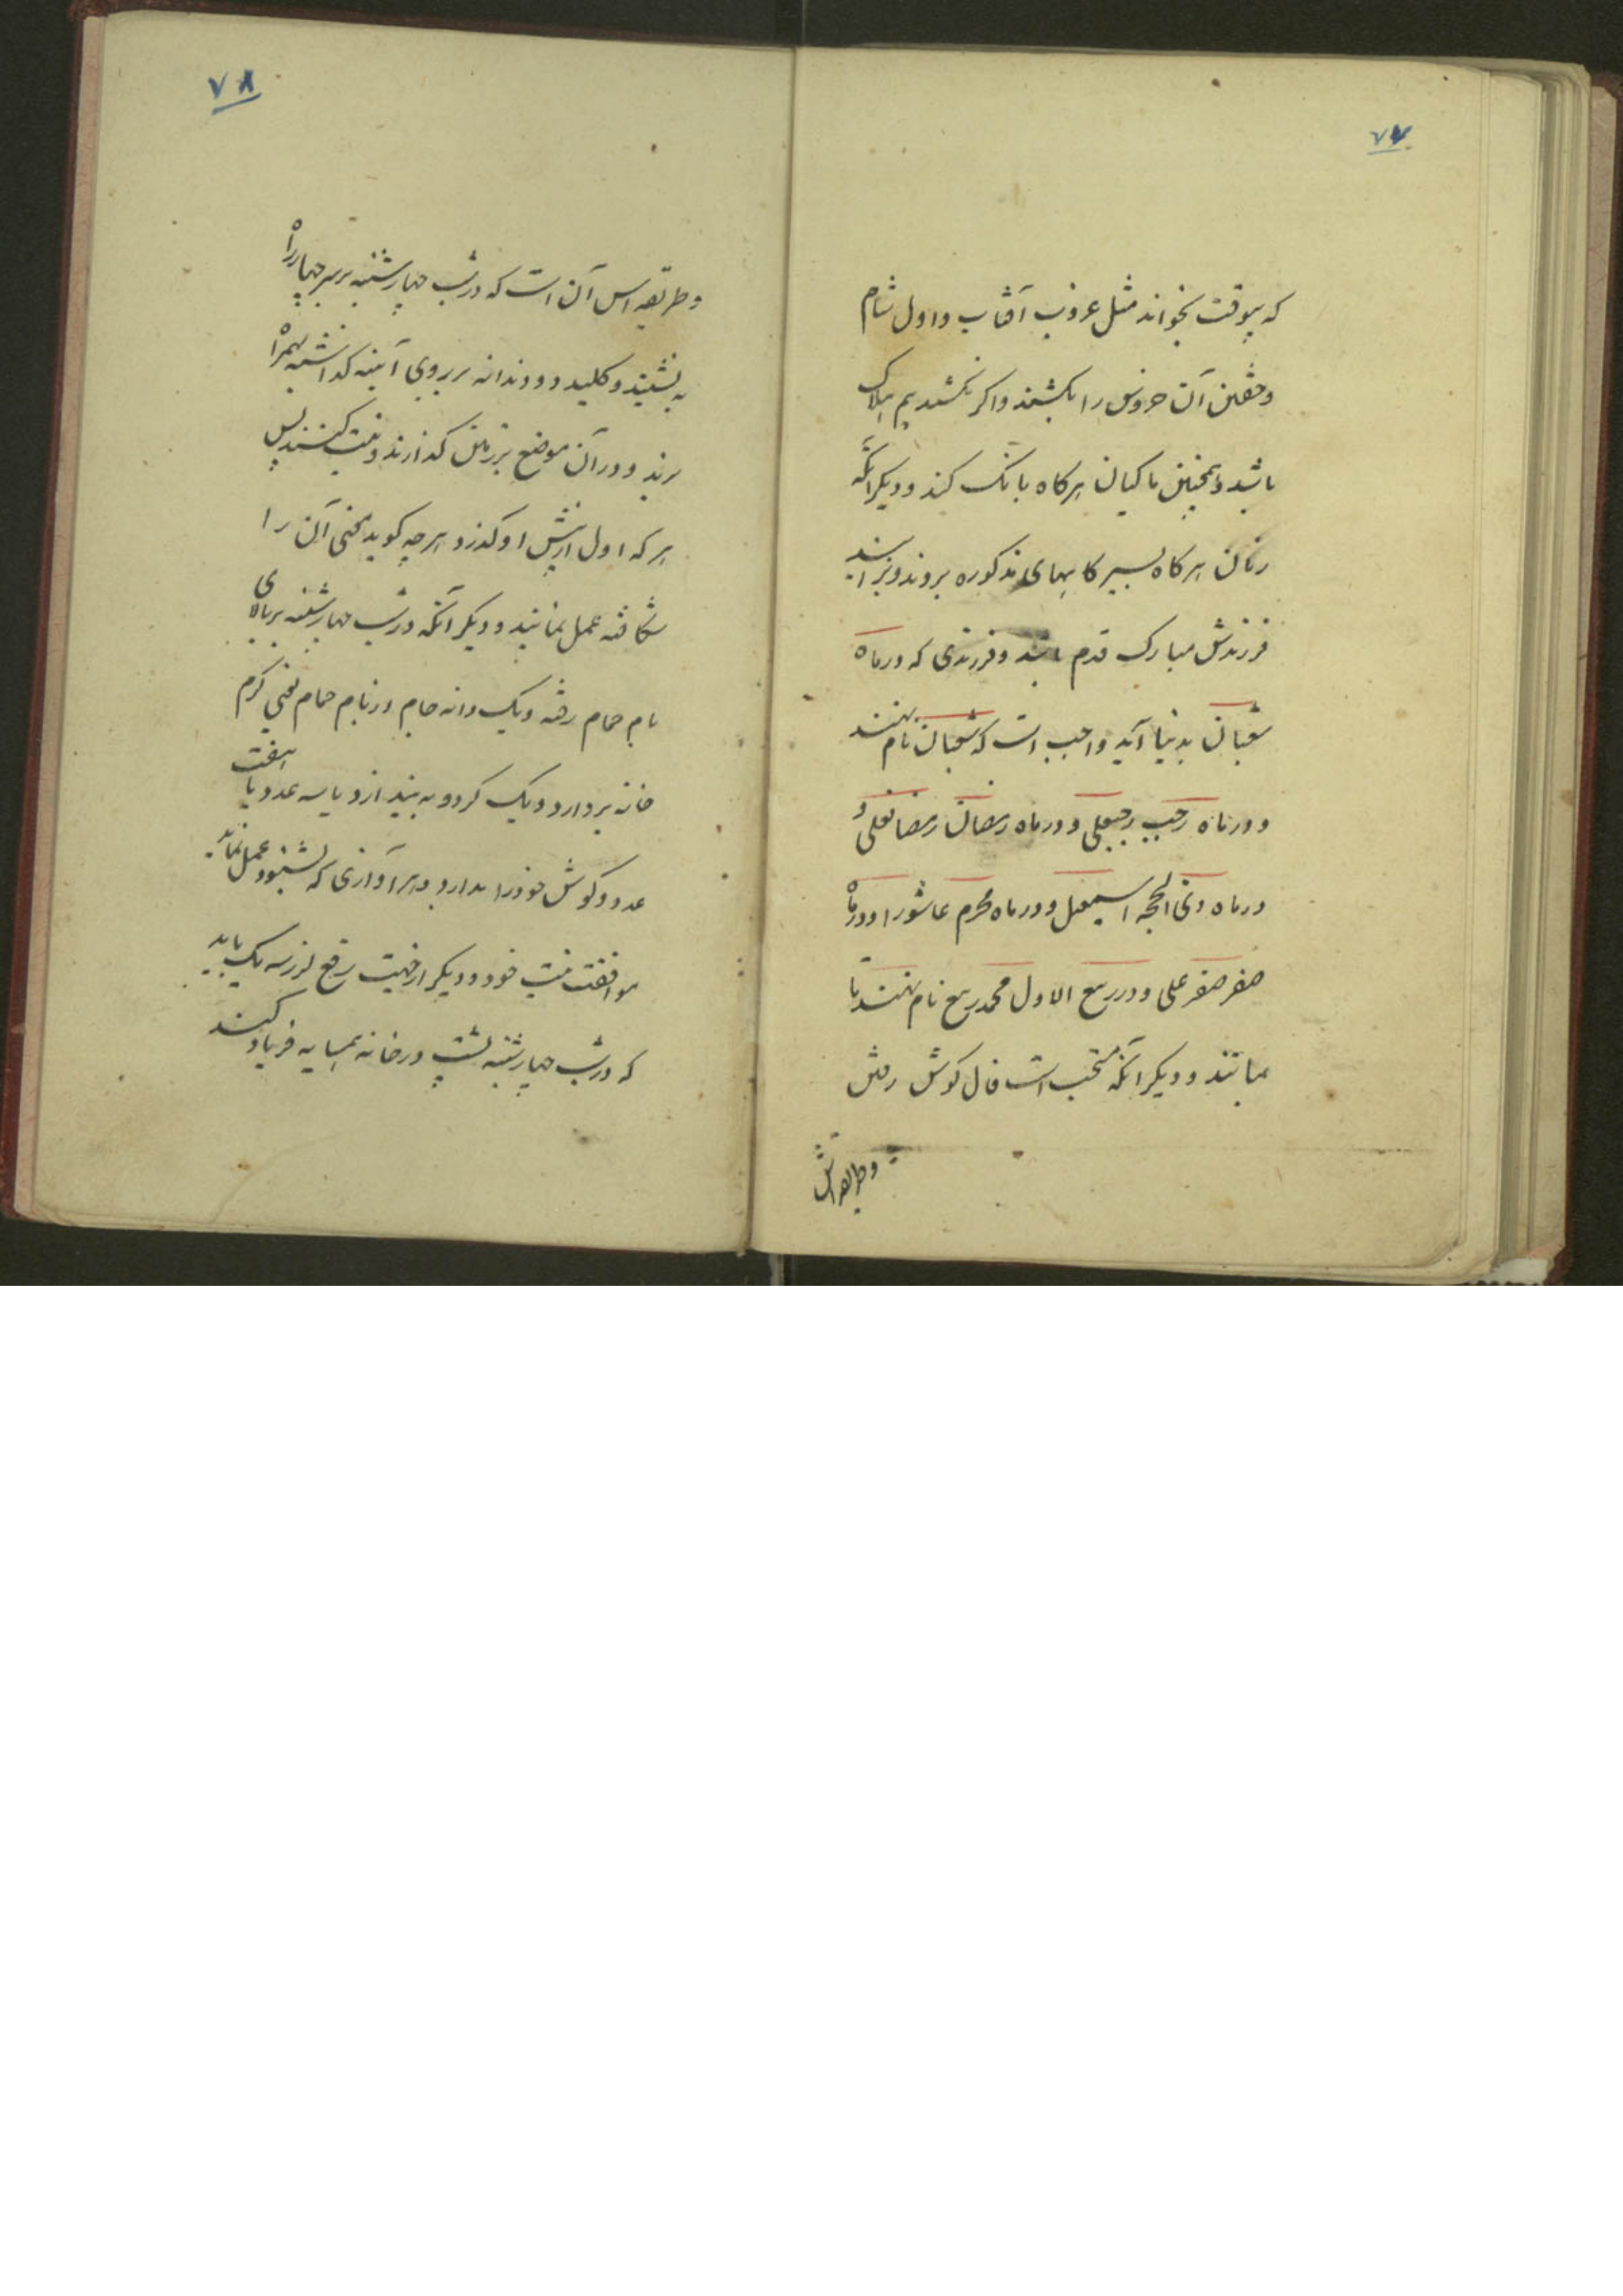 ۷۷
که بیوقت بخواند مثل غروب آفتاب و اول شام
آن خروس را بکشند و اگر نکشند بیم هلاک
باشد و همچنین ماکیان هرگاه بانک کند و دیگر آنکه
زنان هرگاه بسیر کاههای مذکوره بروند و بزایند
فرزندش مبارک قدم باشد و فرزندی که در ماه
شعبان بدنیا آید واجب است که شعبان نام نهند
و در ماه رجب رجبعلی و در ماه رمضان رمضانعلی و
در ماه ذی الحجه اسمعیل و در ماه محرم عاشورا و در ماه
صفر صفر علی و در ربیع الاول محمد ربیع نام نهند تا
بمانند و دیگر آنکه مستحب است فال کوش رفتن
و طریقه اش
۷۸
و طریقه اش آن است که در شب چهارشنبه بر سر چهار راه
به نشینند و کلید دو دندانه بر روی آینه گذاشته همراه
برند و در آن موضع بر زمین گذارند و نیت کنند پس
هر که اول از پیش او گذرد هر چه کوید سخن آن را
شکافته عمل نمایند و دیگر آنکه در شب چهارشنبه بر بالای
بام حمام رفته و یک دانه جام از بام حمام یعنی کرم
خانه بردارد و یک کردو به بیندازد یا سه عدد یا هفت
عدد و کوش خود را بدارد و هر آوازی که بشنود عمل نماید
موافقت نیت خود و دیگر از جهت رفع لرز سه یک باید
که در شب چهارشنبه پشت در خانه همسایه فریاد کنند